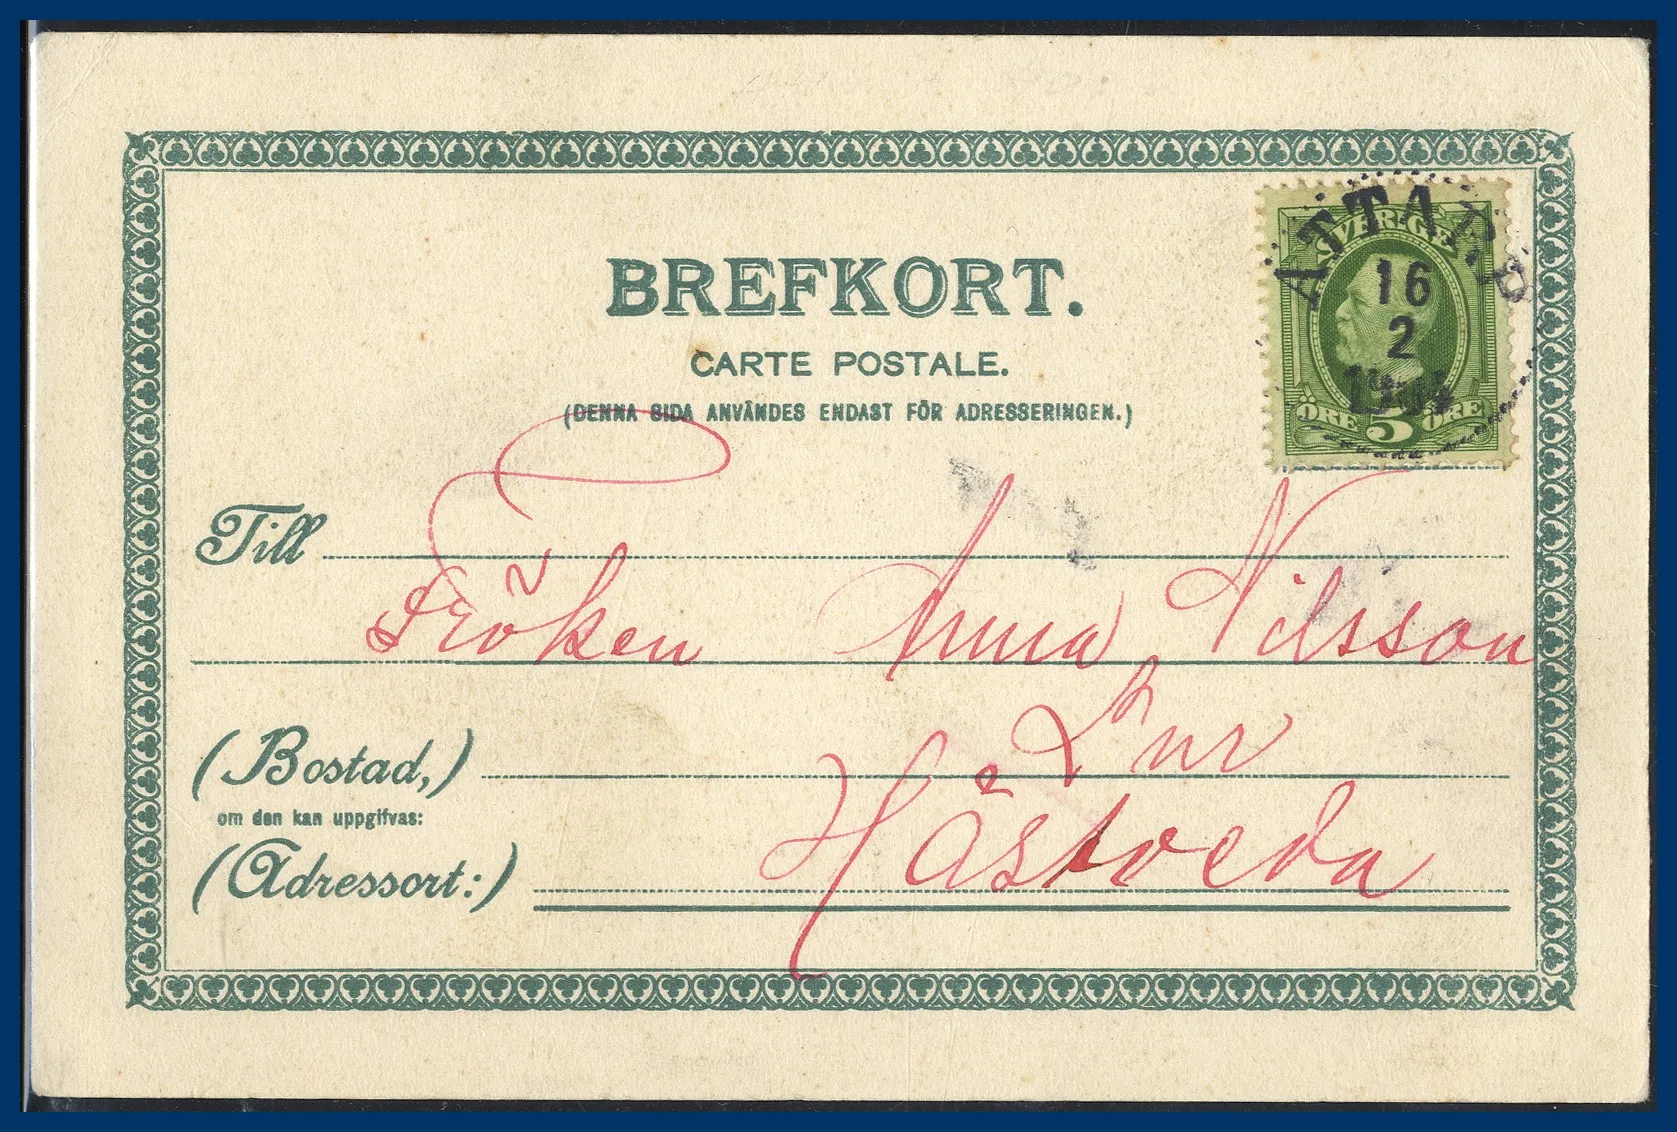 BREFKORT.
CARTE POSTALE.
(DENNA SIDA ANVÄNDES ENDAST FÖR ADRESSERINGEN.)
SVERIGE
ÖRE 5 ÖRE
ATTARP
16
2
Till
Fröken Anna Nilsson
(Bostad,)
om den kan uppgifvas:
Hästveda
(Adressort:)